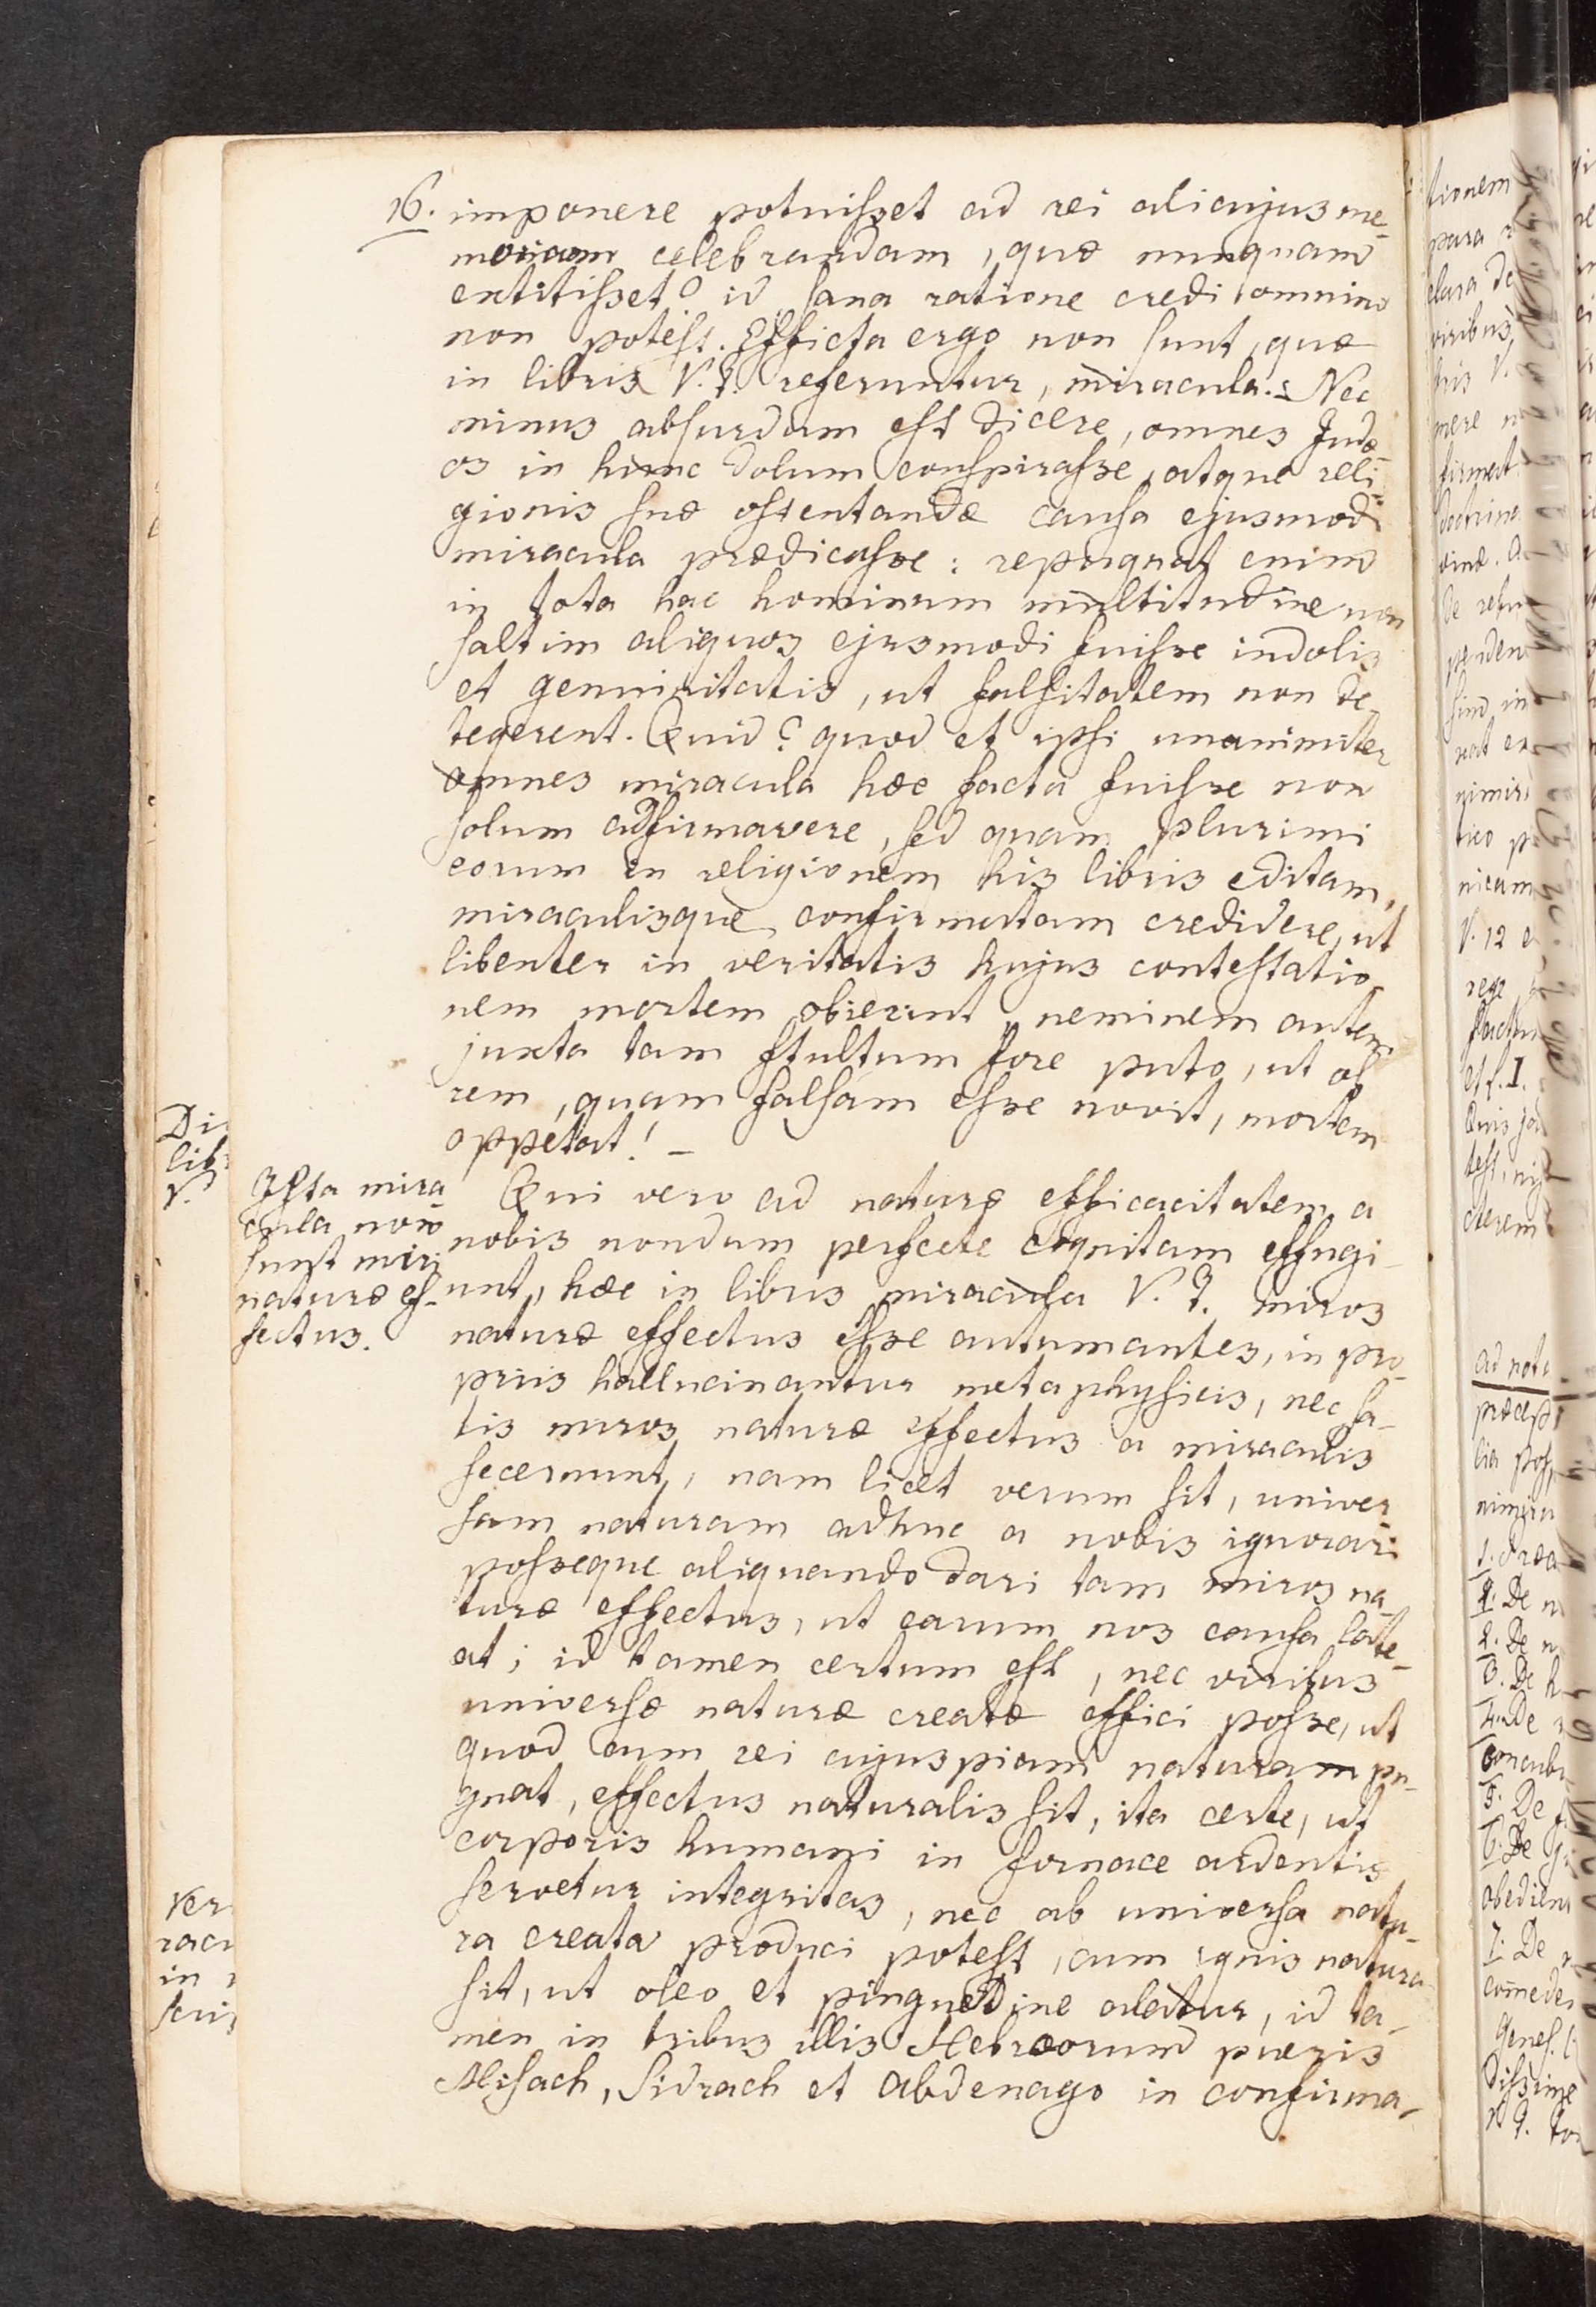 16. imponere potuisset ad rei alicujus me-
moriam celebrandam, quæ nunquam
extitisset? id sana ratione credi omnino
non potest. Efficta ergo non sunt, quæ
in libris V. T. referuntur, miracula. - Nec
minus absurdum est dicere, omnes Judæ-
os in hunc dolum conspirasse, atque reli-
gionis suæ ostentandæ causa ejusmodi
miracula prædicasse: repugnat enim
in tota hac hominum multitudine non
saltim aliquos ejusmodi fuisse indolis
et genuinitatis, ut falsitatem non de-
tegerent. Quid? quod et ipsi unanimiter
omnes miracula hæc facta fuisse non
solum adfirmavere, sed quam plurimi
eorum in religionem his libris editam,
miraculisque confirmatam credidere, ut
libenter in veritatis hujus contestatio-
nem mortem obierint, neminem autem
juxta tam stultum fore puto, ut ob
rem, quam falsam esse novit, mortem
oppetat! -
Ista mira-
cula non
sunt miri
naturæ ef-
fectus.
Qui vero ad naturæ efficacitatem a
nobis nondum perfecte cognitam effugi-
unt, hæc in libris miracula V. T. miros
naturæ effectus esse autumantes, in pro-
priis hallucinantur metaphysicis, nec sa-
tis miros naturæ effectus a miraculis
secernunt, nam licet verum sit, univer-
sam naturam adhuc a nobis ignorari
posseque aliquando dari tam miros na-
turæ effectus, ut earum nos causa late-
at; id tamen certum est, nec viribus
universæ naturæ creatæ effici posse, ut
quod cum rei cujuspiam naturam pu-
gnat, effectus naturalis sit, ita certe, ut
corporis humani in fornace ardentis
servetur integritas, nec ab universa natu-
ra creata produci potest, cum ignis natura
sit, ut oleo et pinguedine alatur, id ta-
men in tribus illis Hebræorum pueris
Misach, Sidrach et Abdenago in confirma-